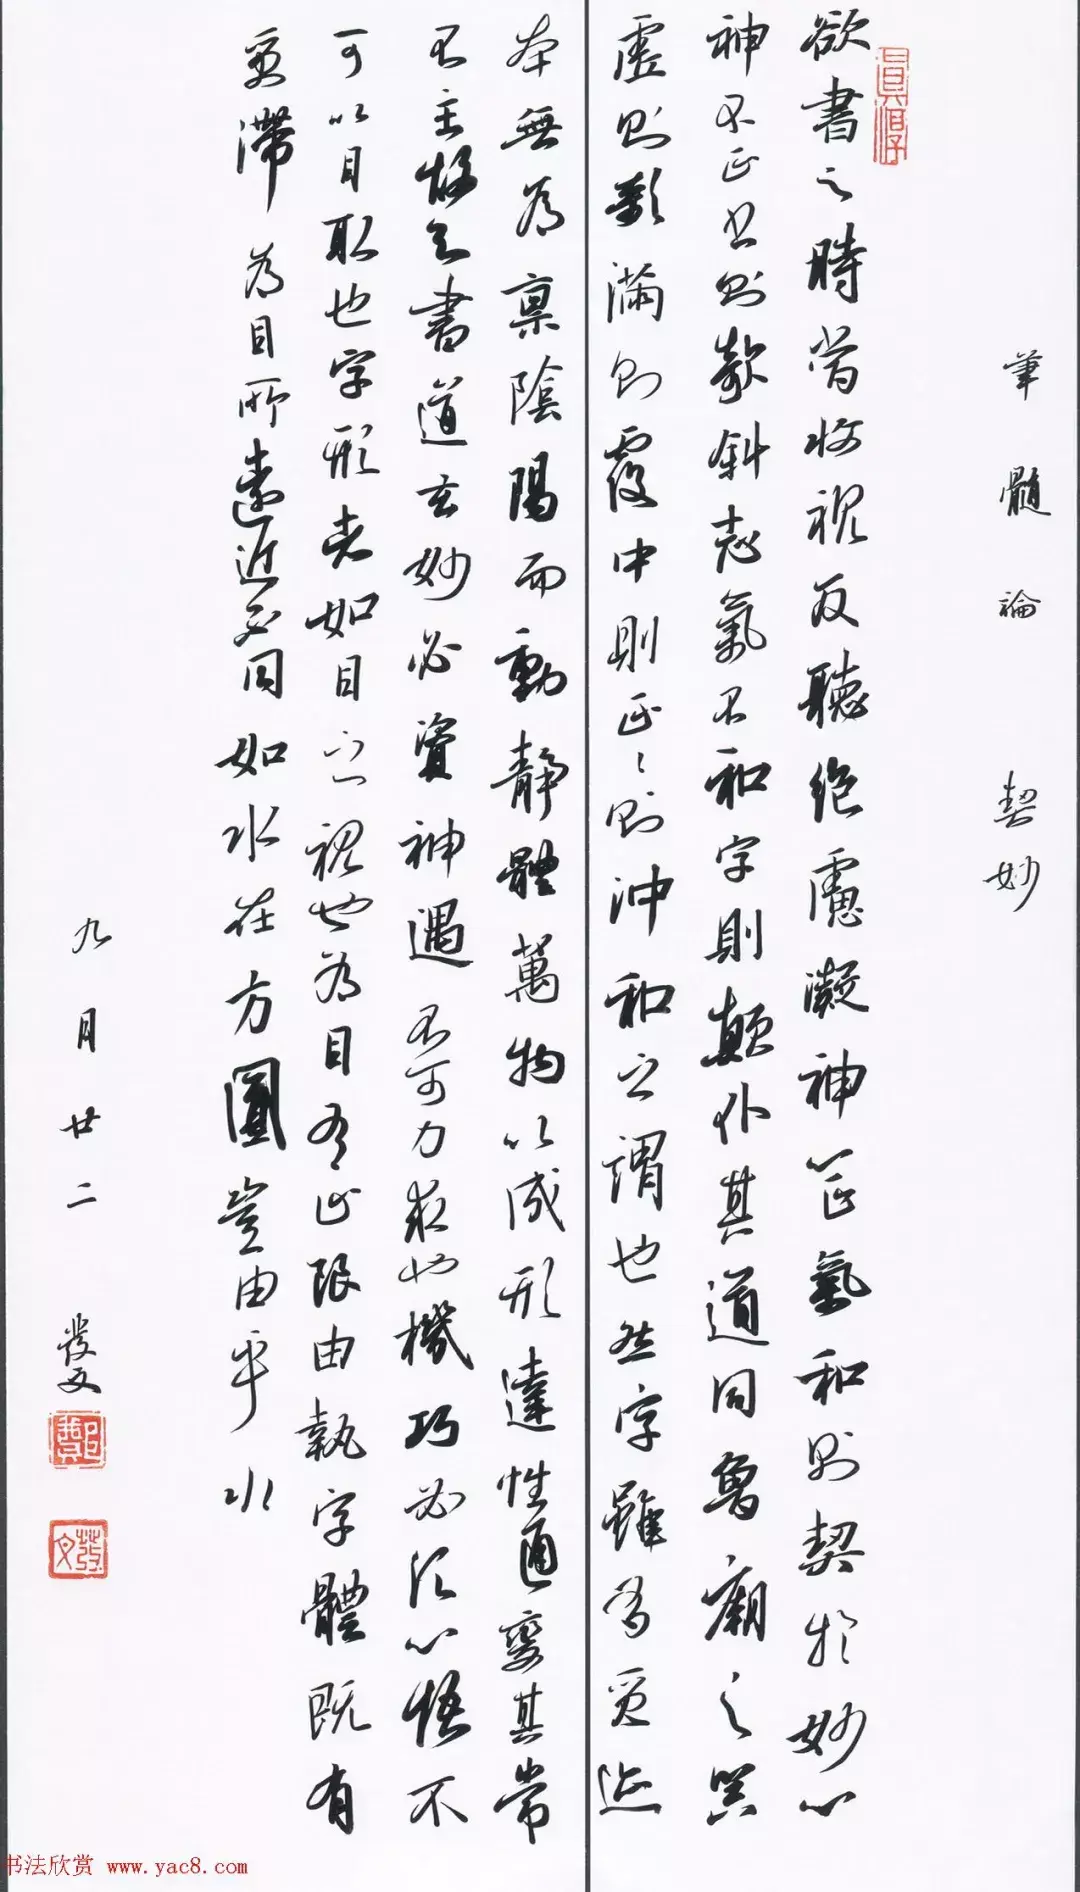 筆髓論 契妙
真淳
欲書之時當收視反聽絕慮凝神心正氣和則契於妙心
神不正書則欹斜志氣不和字則顛仆其道同魯廟之器
虛則欹滿則覆中則正〻則沖和之謂也然字雖有質迹
本無為稟陰陽而動靜體萬物以成形達性通變其常
不主故知書道玄妙必資神遇不可力求也機巧必須心悟不
可以目取也字形者如目之視也為目有止限由執字體既有
質滯為目所遠近不同如水在方圓豈由乎水
九月廿二 發文
發文
书法欣赏 www.yac8.com